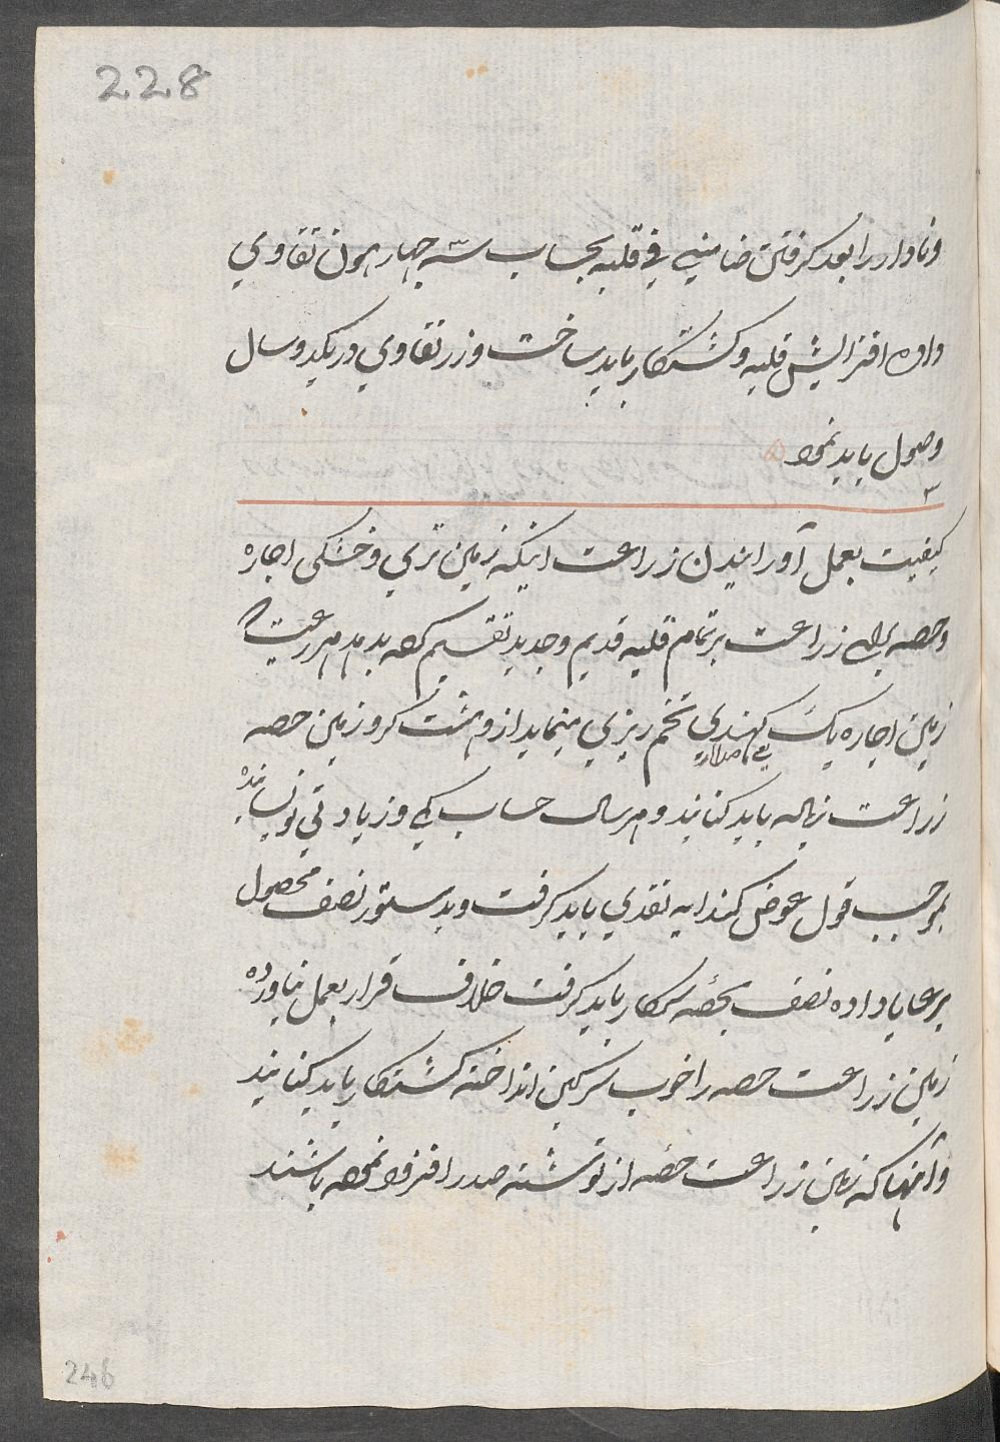 228
و نادار را بعد کرفتن ضامنی فی قلبه بحساب سه چهار هون تقاوی
داده افزایش قلبه و کشتکار باید ساخت و زر تقاوی در یکدو سال
وصول باید نمود
کیفیت بعمل آورانیدن زراعت اینکه زمین تری و خشکی اجاره
و حصه برای زراعت بر تمام قلبه قدیم و جدید تقسیم کرده بدهد هر رعیت
زمین اجاره یک کهندی تخم ریزی مینماید از و هشت کرو زمین حصه
زراعت نهاله باید کنانید و هر سال حساب کمی و زیادتی نویسانیده
بموجب قول عوض کندایه نقدی باید کرفت و بدستور نصف محصول
برعایا داده نصف بحصه سرکار باید کرفت خلاف قرار بعمل نیاورده
زمین زراعت حصه را خوب سرکین انداخته کشتکار باید کنانید
و آنها که زمین زراعت حصه از نوشته صدر افزود نموده باشند
246